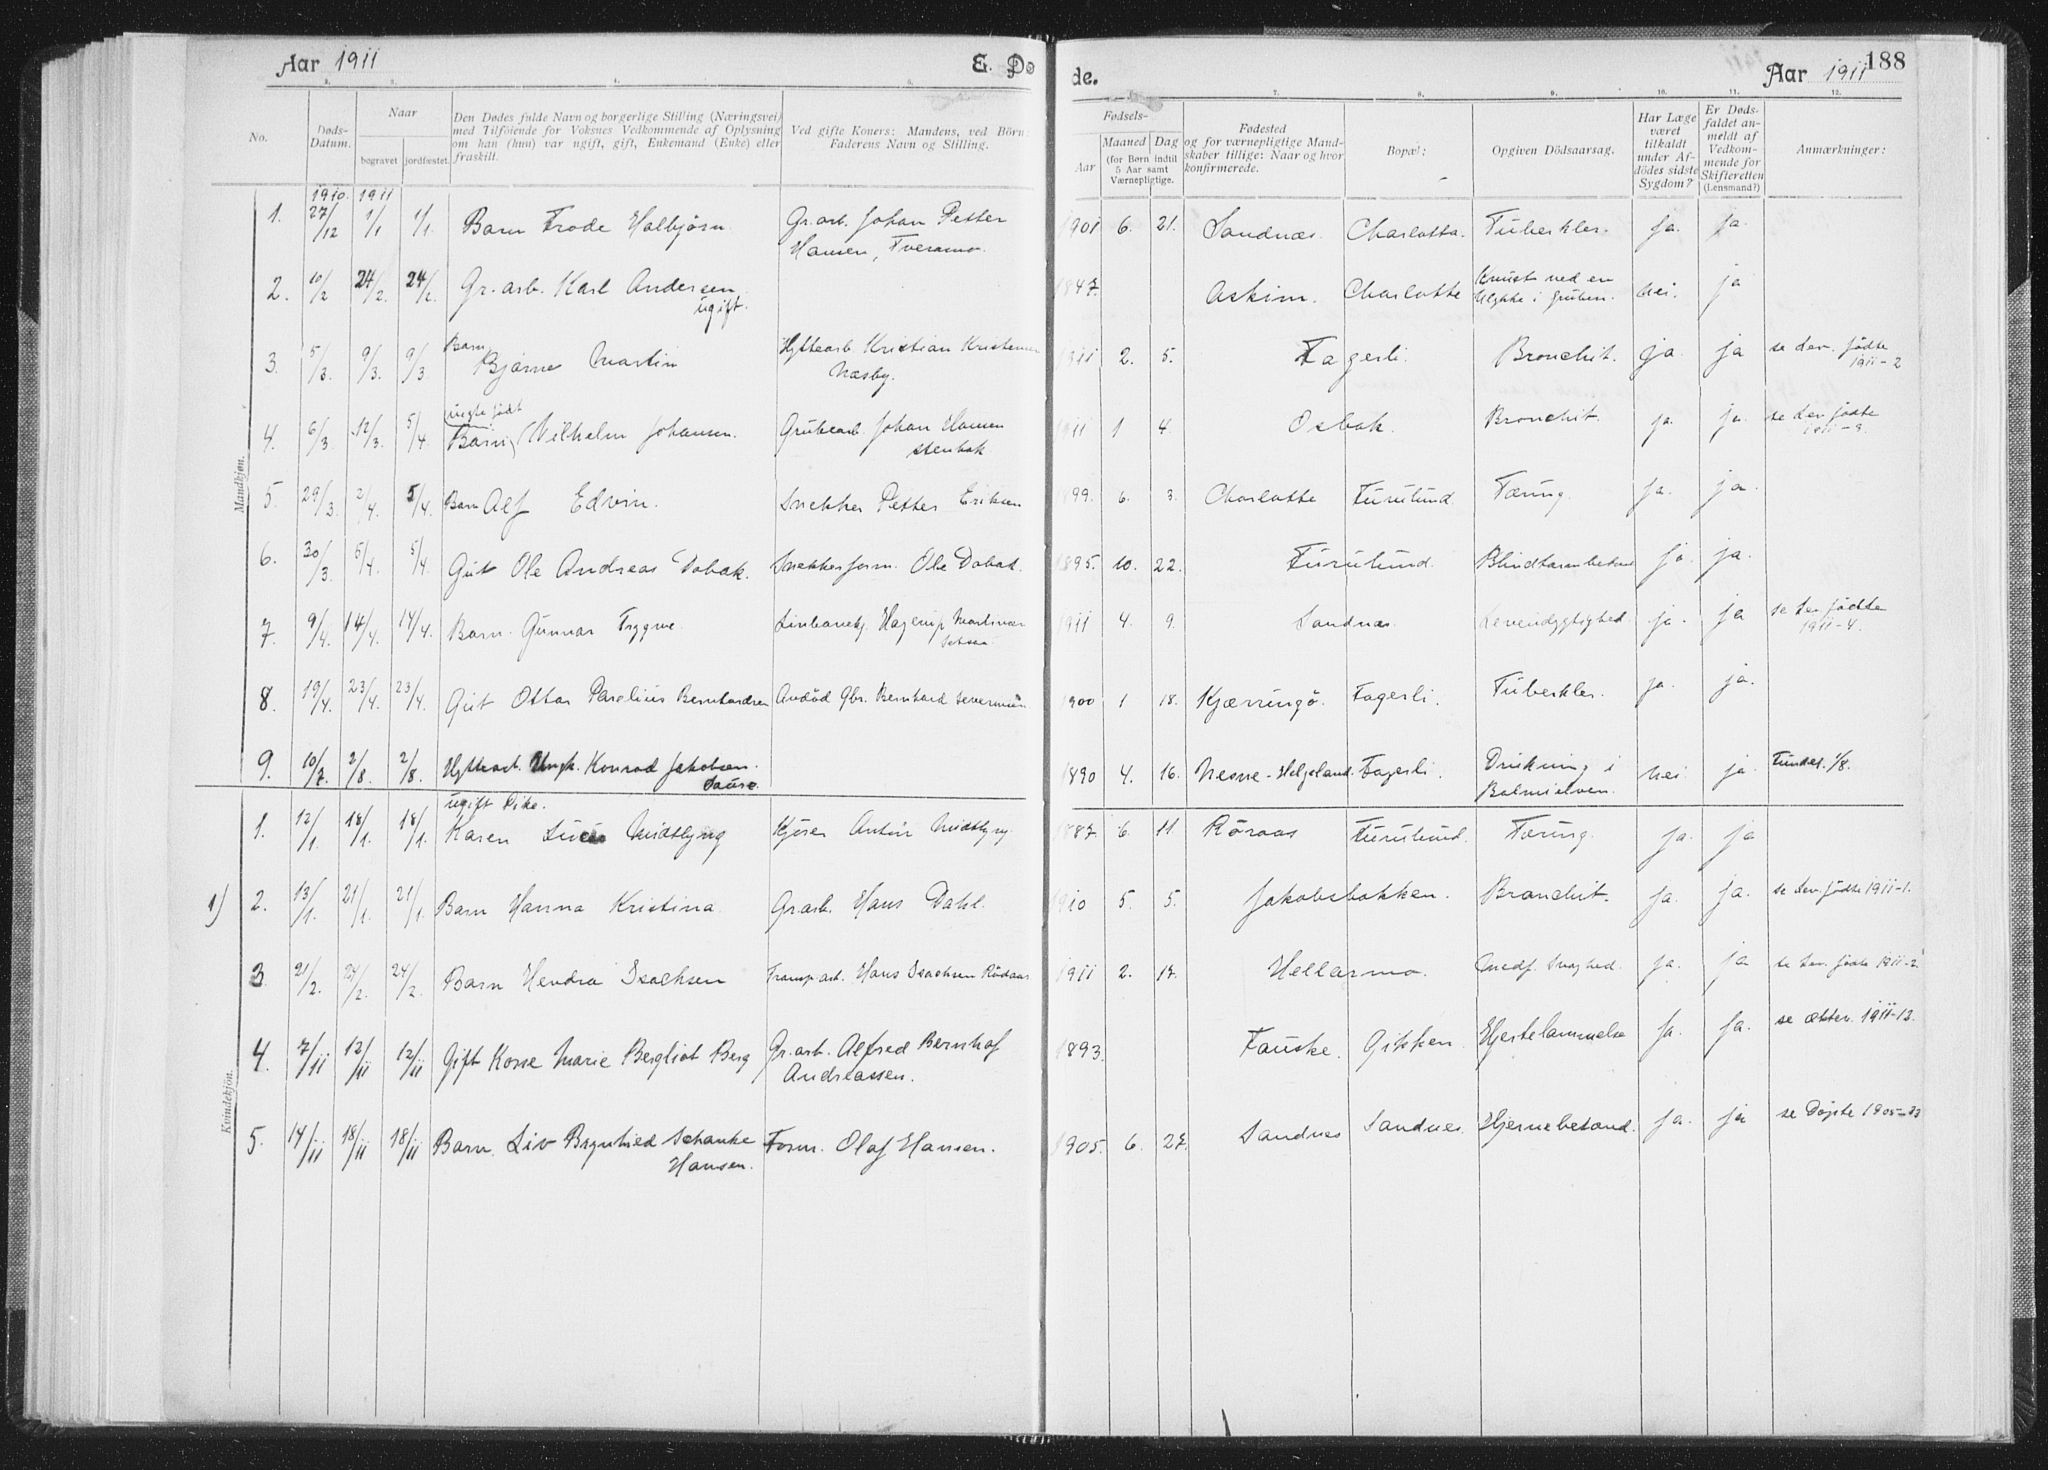 Aar 1911
E. Dö
de.
Aar 1911
188
No.
Døds-
Datum.
Naar
begravet
jordfæstet.
Den Dødes fulde Navn og borgerlige Stilling (Næringsvei)
med Tilföiende for Voksnes Vedkommende af Oplysning
om han (hun) var ugift, gift, Enkemand (Enke) eller
fraskilt.
Ved gifte Koner: Mandens, ved Börn:
Faderens Navn og Stilling.
Fødsels-
Aar
Maaned
Dag
(for Børn indtil
5 Aar samt
Værnepligtige.
Fødested
og for værnepligtige Mand-
skaber tillige: Naar og hvor
konfirmerede.
Bopæl:
Opgiven Dödsaarsag.
Har Læge
været
tilkaldt
under Af-
dödes sidste
Sygdom?
Er Døds-
faldet an-
meldt af
Vedkom-
mende for
Skifteretten
(Lensmand?)
Anmærkninger:
Mandkjøn.
1910. 1911
1. 27/12 1/1 1/1. Barn Frode Halbjørn. Gr.arb. Johan Petter
Hansen, Tveramo. 1901 6. 21. Sandnæs. Charlotta. Tuberkler. ja. ja.
2. 10/2 24/2. 24/2. Gr.arb. Karl Andersen
ugift. 1847. Askim. Charlotte Knust ved en
Ulykke i gruben. nei. ja
3. 5/3. 9/3. 9/3 Barn Bjarne Martin Hyttearb. Kristian Kristensen
Næsby. 1911 2. 5. Fagerli. Bronchit. ja. ja se lev. fødte
1911-2
4. 6/3 12/3. 5/4 uegte født
Barn Vilhelm Johansen. Grubearb. Johan Hansen
Stenbak 1911 1 4. Osbak. Bronchit. ja. ja. se lev fødte
1911-3.
5. 29/3. 2/4. 5/4. Barn Alf Edvin. Snekker Petter Eriksen 199. 6. 3. Charlotte Furulund. Tæring. ja. ja.
6. 30/3. 5/4. 5/4. Gut Ole Andreas Dobak. Snekkerform. Ole Dobak. 1895. 10. 22. Furulund. ja. ja.
7. 9/4. 14/4. 14/4. Barn. Gunnar Trygve. Hagerup 1911 4. 9. Sandnæs. Leveudygtighed. ja. ja se lev. fødte
1911-4.
8. 19/4. 23/4. 23/4. Gut Ottar Parelius Bernhardsen Bernhard 1900 1 18. Kjærringö. Fagerli. Tuberkler. ja. ja.
9. 10/7. 2/8. 2/8. Hyttearb. Ungk. Konrad Jakobsen. 1890 4. 16. Nesne-Helgeland. Fagerli. Drukning i
Balmielven. nei ja. Fundet 1/8.
Kvindekjön.
1. 12/1. 18/1. 18/1. ugift Pike.
Karen Midtlyng Kjører Anton Midtlyng 1887. 6. 11. Röraas Furulund. Tæring. ja. ja
1) 2. 13/1. 21/1. 21/1. Barn Hanna Kristina. Gr.arb. Hans Dahl. 1910 5. 5. Jakobsbakken. Bronchit. ja. ja. se lev. fødte 1911-1.
3. 21/2. 24/2. 24/2. Barn Hendra Isachsen Transp.arb. Hans Isachsen Rödaas 1911 2. 17. Hellarmo. Medf. Svaghed. ja. ja se lev. fødte 1911-2
4. 7/11 12/11 12/11 Gift Kone Marie Bergliot Berg Gr.arb. Alfred Bernhof
Andreassen. 1893. Fauske. Gikken. Hjertelammelse ja. ja. se ektev. 1911-13.
5. 14/11 18/11 18/11 Barn. Liv Schanke
Hansen. Form. Olaf Hansen. 1905. 6. 27. Sandnes Sandnes. Hjernebetænd. ja. ja se Döpte 1905-23